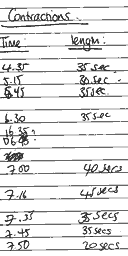 Contractions.
Time: length:
4.35 35 sec
5.15 30 sec.
5.45 35 sec
6.30 35 sec
7.00 40 secs
7.16 45 secs
7.35 35 secs
7.45 35 secs
7.50 20 secs